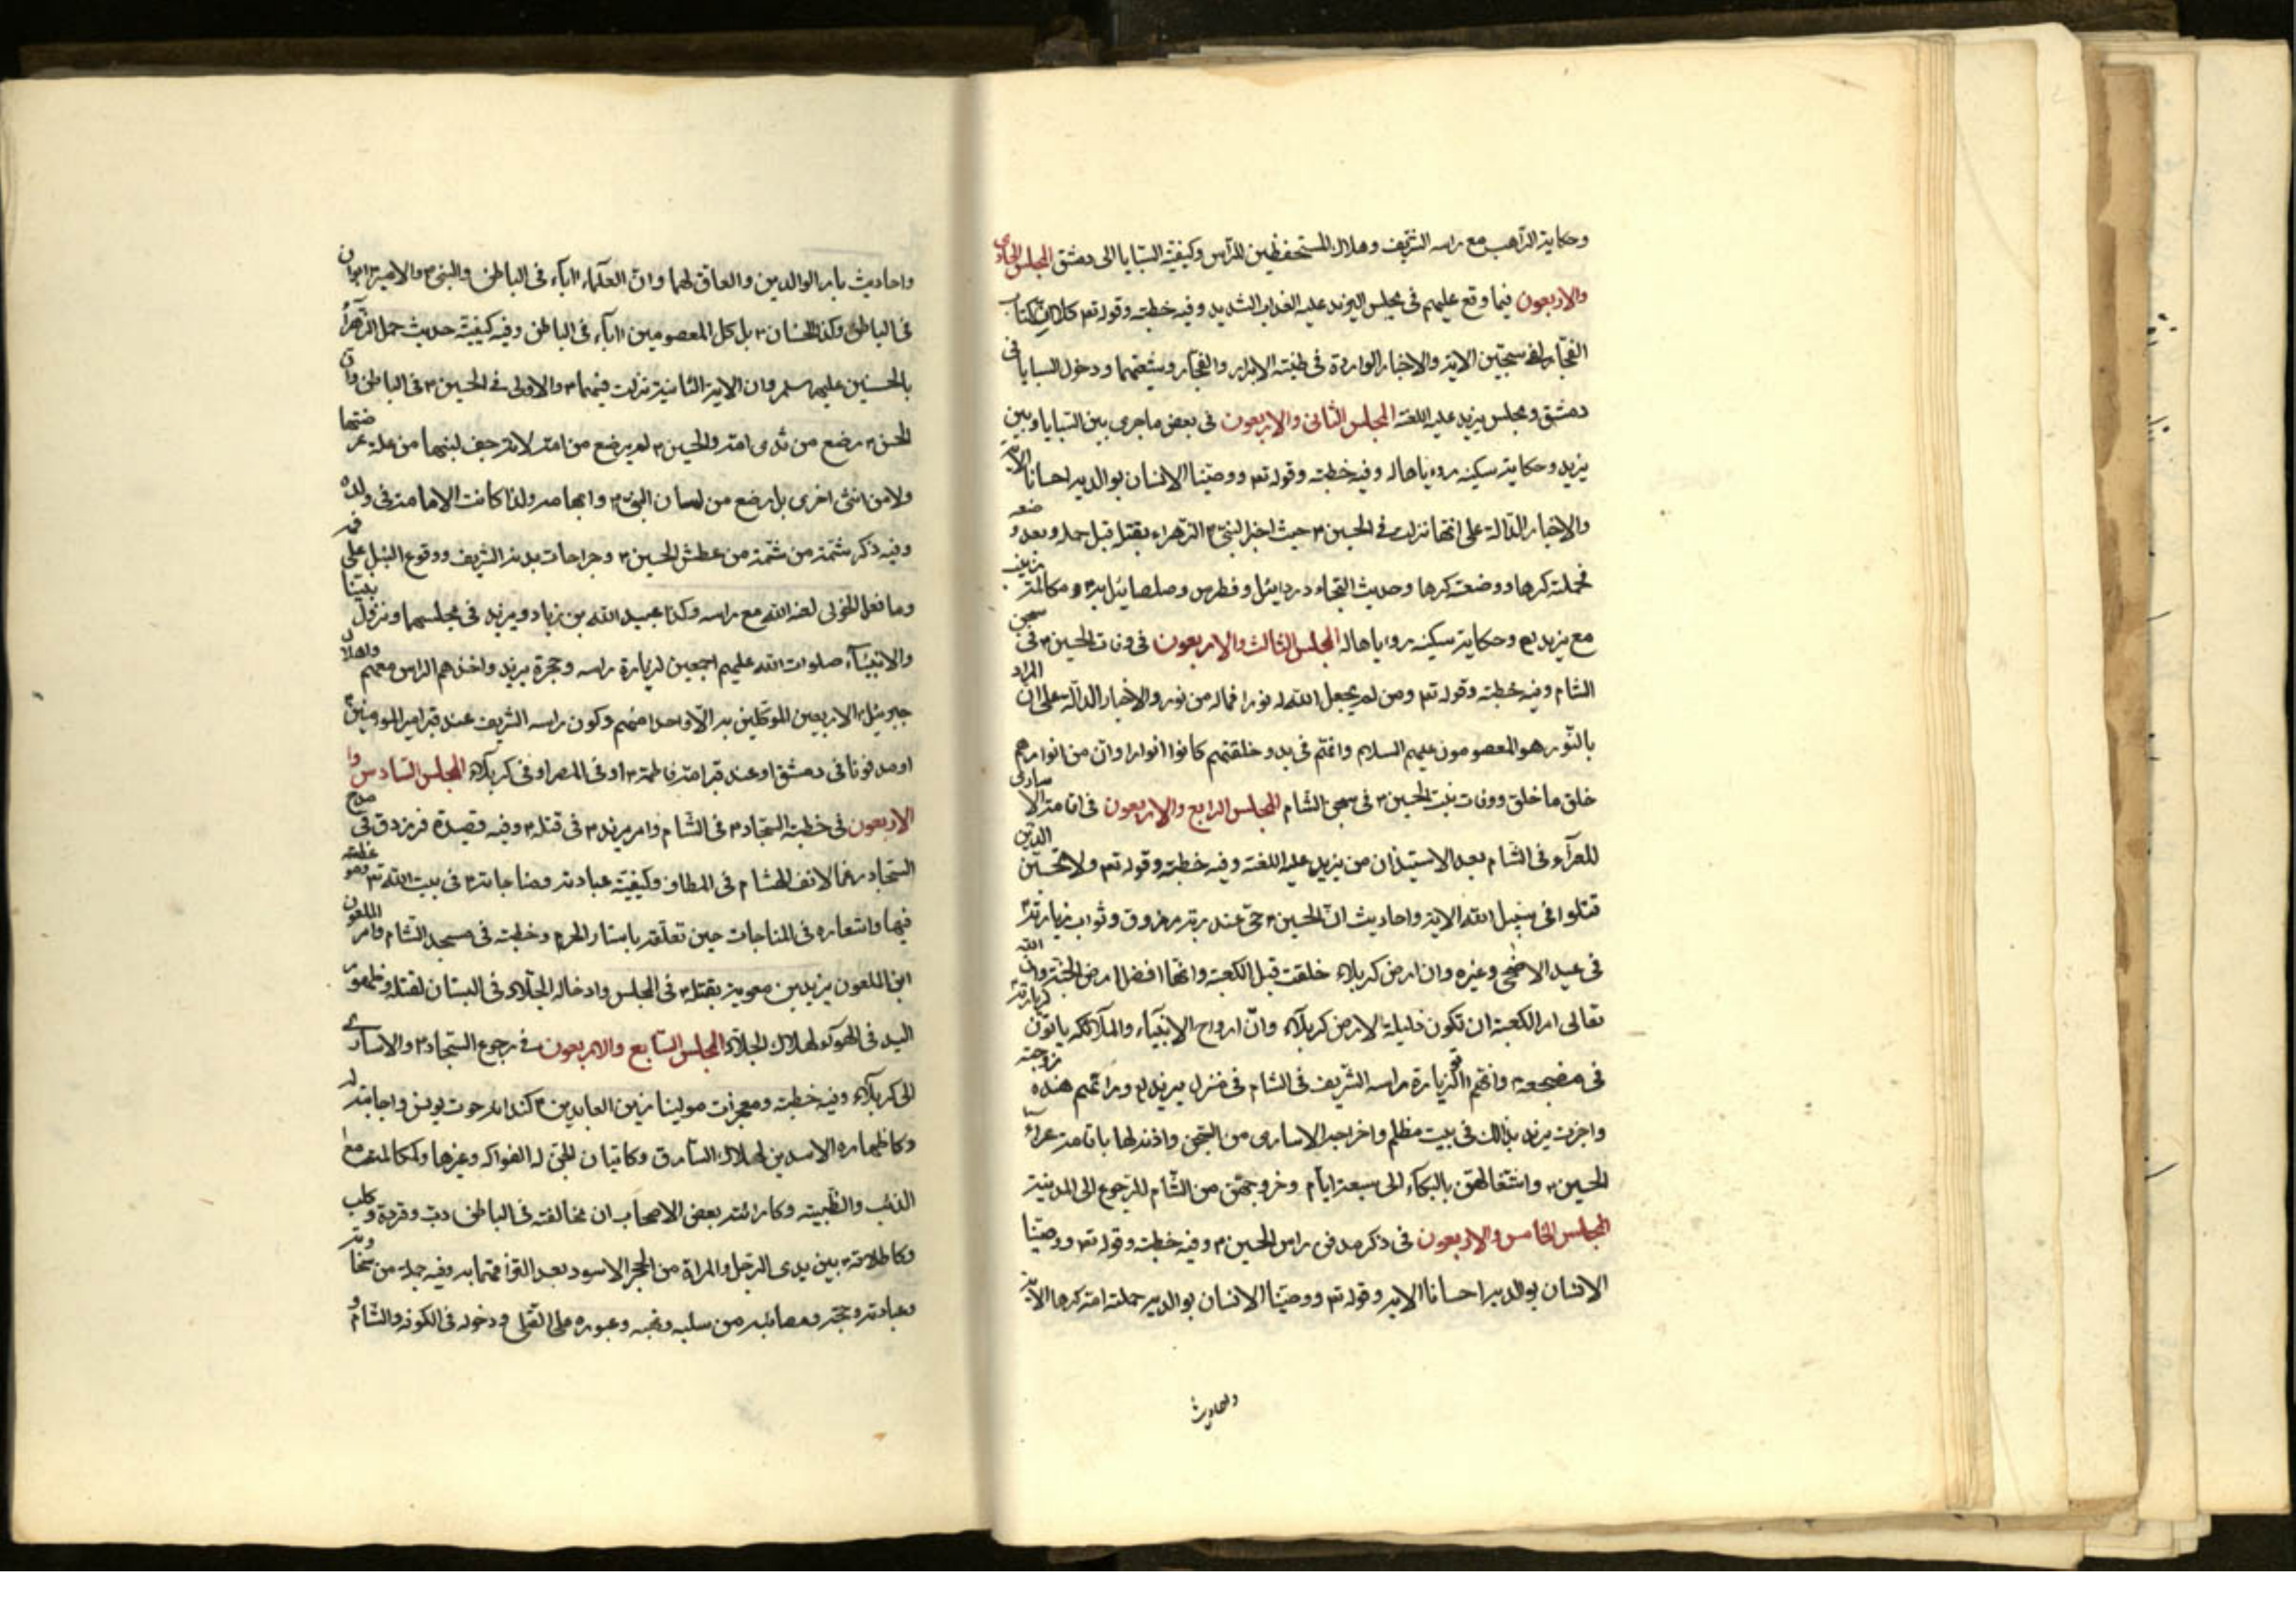 وحكاية الراهب مع راسه الشريف وهلاك المستحفظين للراس وكيفية السبايا الى دمشق المجلس الحادى
والاربعون فيما وقع عليهم فى مجلس اليزيد عليه العذاب الشديد وفيه خطبته وقوله تعم كلا ان كتاب
الفجار لفى سجين الاية والاخبار الواردة فى طينة الابرار والفجار وشيعتهما ودخول السبايا فى
دمشق ومجلس يزيد عليه اللعنة المجلس الثانى والاربعون فى بعض ماجرى بين السبايا وبين
يزيد وحكاية سكينه روءياها له وفيه خطبته وقوله تعم ووصينا الانسان بوالديه احسانا الاية
والاخبار الدالة على انها نزلت فى الحسين ع حيث اخبر النبى ص الزهراء بقتله قبل حمله وبعد وضعه
فحملته كرها ووضعته كرها وحديث التجاء دردايئل وفطرس وصلصايئل به ع ومكالمة زينب
مع يزيد لع وحكاية سكينه روءياها له المجلس الثالث والاربعون فى وفات الحسين ع فى سجن
الشام وفيه خطبته وقوله تعم ومن لم يجعل الله له نورا فماله من نور والاخبار الدالة على ان المراد
بالنور هو المعصومون عليهم السلام وانهم فى بدو خلقتهم كانوا انوارا وان من انوارهم
خلق ما خلق ووفات بنت الحسين ع فى سجن الشام المجلس الرابع والاربعون فى اقامة الاسارى
للعزآء فى الشام بعد الاستيذان من يزيد عليه اللعنة وفيه خطبته وقوله تعم ولا تحسبن الذين
قتلوا فى سبيل الله الاية واحاديث ان الحسين ع حى عند ربه مرزوق وثواب زيارته
فى عيد الاضحى وغيره وان ارض كربلاء خلقت قبل الكعبة وانها افضل ارض الجنة وان الله
تعالى امر الكعبة ان تكون ذليلة لارض كربلآء وان ارواح الانبيآء والملآئكه ياتون لزيارته
فى مضجعه ع وانهم اتو لزيارة راسه الشريف فى الشام فى منزل يزيد لع ورأتهم هنده زوجته
واخبرت يزيد بذلك فى بيت مظلم واخراجه الاسارى من السجن واذنه لها باقامة عزآء
الحسين ع واشتغالهن بالبكاء الى سبعة ايام وخروجهن من الشام للرجوع الى المدينة
المجلس الخامس والاربعون فى ذكر مدفن راس الحسين ع وفيه خطبته وقوله تعم ووصينا
الانسان بوالديه احسانا الاية وقوله تعم ووصينا الانسان بوالديه حملته امه كرها الاية
واحاديث
واحاديث بار الوالدين والعاق لهما وان العلماء اباء فى الباطن والنبى ص والامير ع ابوان
فى الباطن وكذا الحسنان ع بل كل المعصومين اباء فى الباطن وفيه كيفية حديث حمل الزهرآء
بالحسنين عليهم سلم وان الاية الثانية نزلت فيهما ع والاولى فى الحسين ع فى الباطن وان
الحسن ع رضع من ثدى امه والحسين ع لم يرضع من امه لانه جف لبنها من علة عرضتها
ولا من انثى اخرى بل رضع من لسان النبى ص وابهامه ولذا كانت الامامة فى ولده
وفيه ذكر شمة من شمة من عطش الحسين ع وجراحات بدنه الشريف ووقوع النبل على
وما فعل الخولى لعنه الله مع راسه وكذا عبيد الله بن زياد ويزيد فى مجلسهما ونزول نبينا
والانبيآء صلوات الله عليهم اجمعين لزيارة راسه وحجرة يزيد واخذهم الراس معهم واهلاك
جبرئيل الاربعين الموكلين به الا واحدا منهم وكون راسه الشريف عند قبر امير المومنين
او مدفونا فى دمشق او عند قبر امه فاطمة ع او فى المصر او فى كربلآء المجلس السادس وا
الاربعون فى خطبة السجاد ع فى الشام وامر يزيد ع فى قتله ع وفيه قصيدة فرزدق فى مدح
السجاد رغما لانف الهشام فى المطاف وكيفية عبادته ومناجاته ع فى بيت الله
فيها واشعاره فى المناجات حين تعلقه باستار الحرم وخطبته فى مسجد الشام وامر الملعون
ابن الملعون يزيد بن معوية بقتله ع فى المجلس وادخاله الجلاد فى البستان لقتله وظهور
اليد فى الهوآء لهلاك الجلاد المجلس السابع والاربعون فى رجوع السجاد ع والاسارى
الى كربلآء وفيه خطبته ومعجزات مولينا زين العابدين ع كندائه حوت يونس واجابته له
وكاظهاره الاسدين لهلاك السارق وكاتيان الجن له الفواكه وغيرها وكمكالمته مع
الذئب والظبية وكارائته بعض الاصحاب ان مخالفته فى الباطن دب وقردة وكلب
بين يدى الرجل والمراة من الحجر الاسود بعد وفيه جملة من
وعبادته وحجه ومصائبه من سلبه ونهبه وعبوره على القتلى ودخوله فى الكوفه والشام